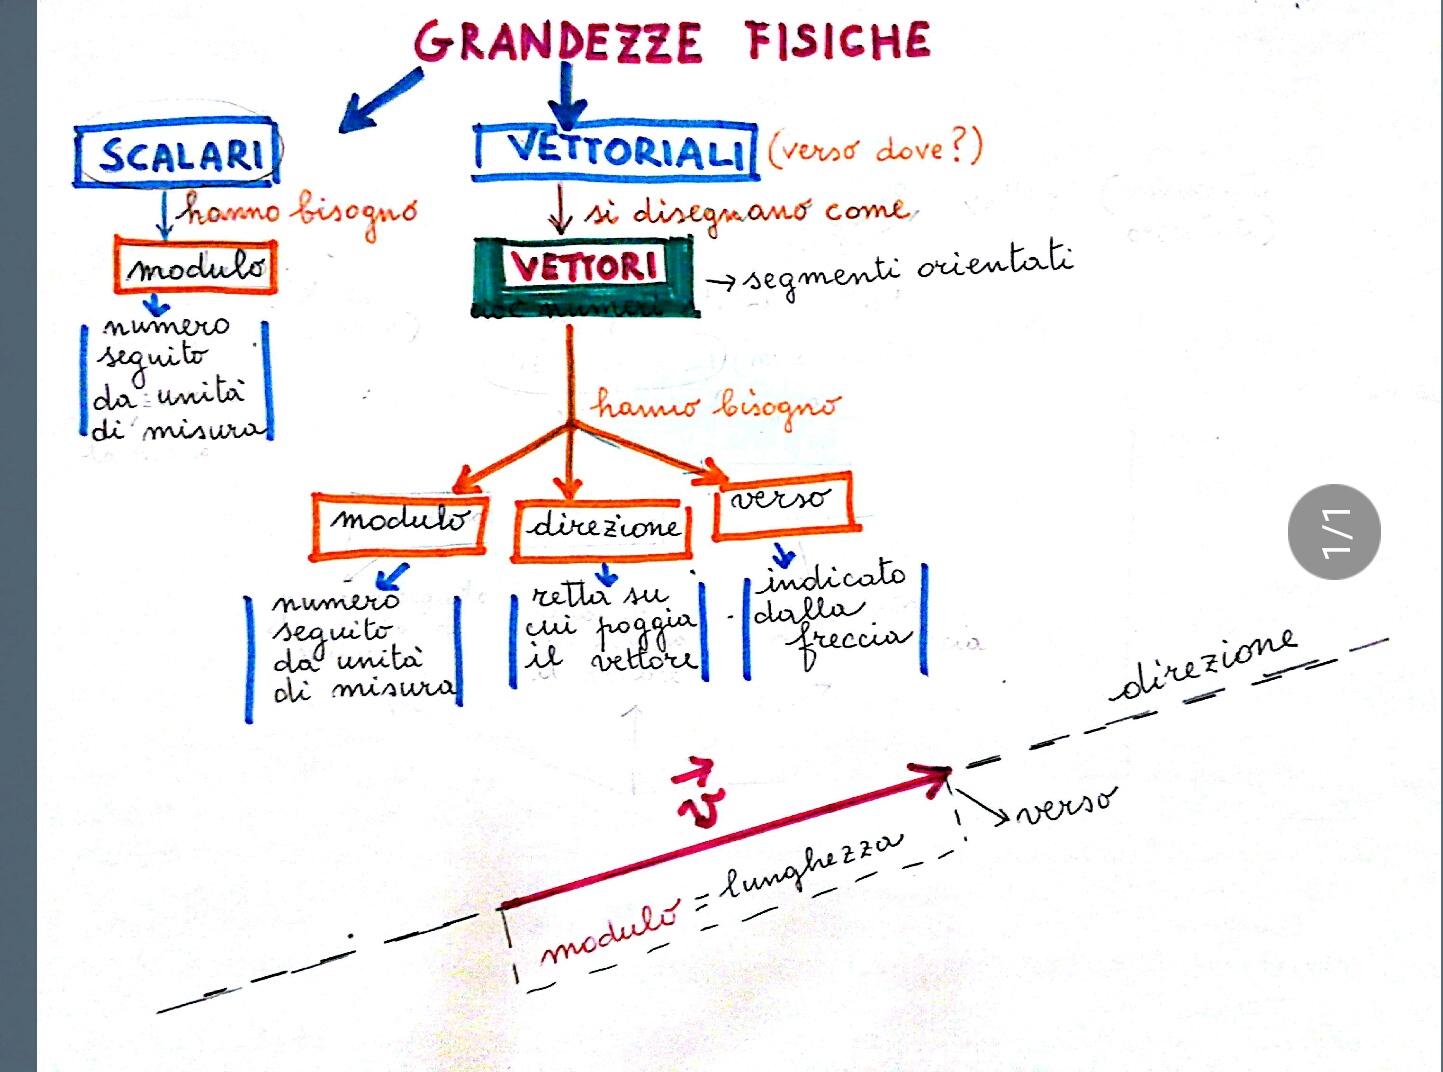 GRANDEZZE FISICHE
SCALARI
VETTORIALI (verso dove?)
hanno bisogno
si disegnano come
modulo
VETTORI
→ segmenti orientati
numeri
numero
seguito
da unità
di misura
hanno bisogno
modulo
direzione
verso
numero
seguito
da unità
di misura
retta su
cui poggia
il vettore
indicato
dalla
freccia
direzione
v⃗
verso
modulo = lunghezza
1/1